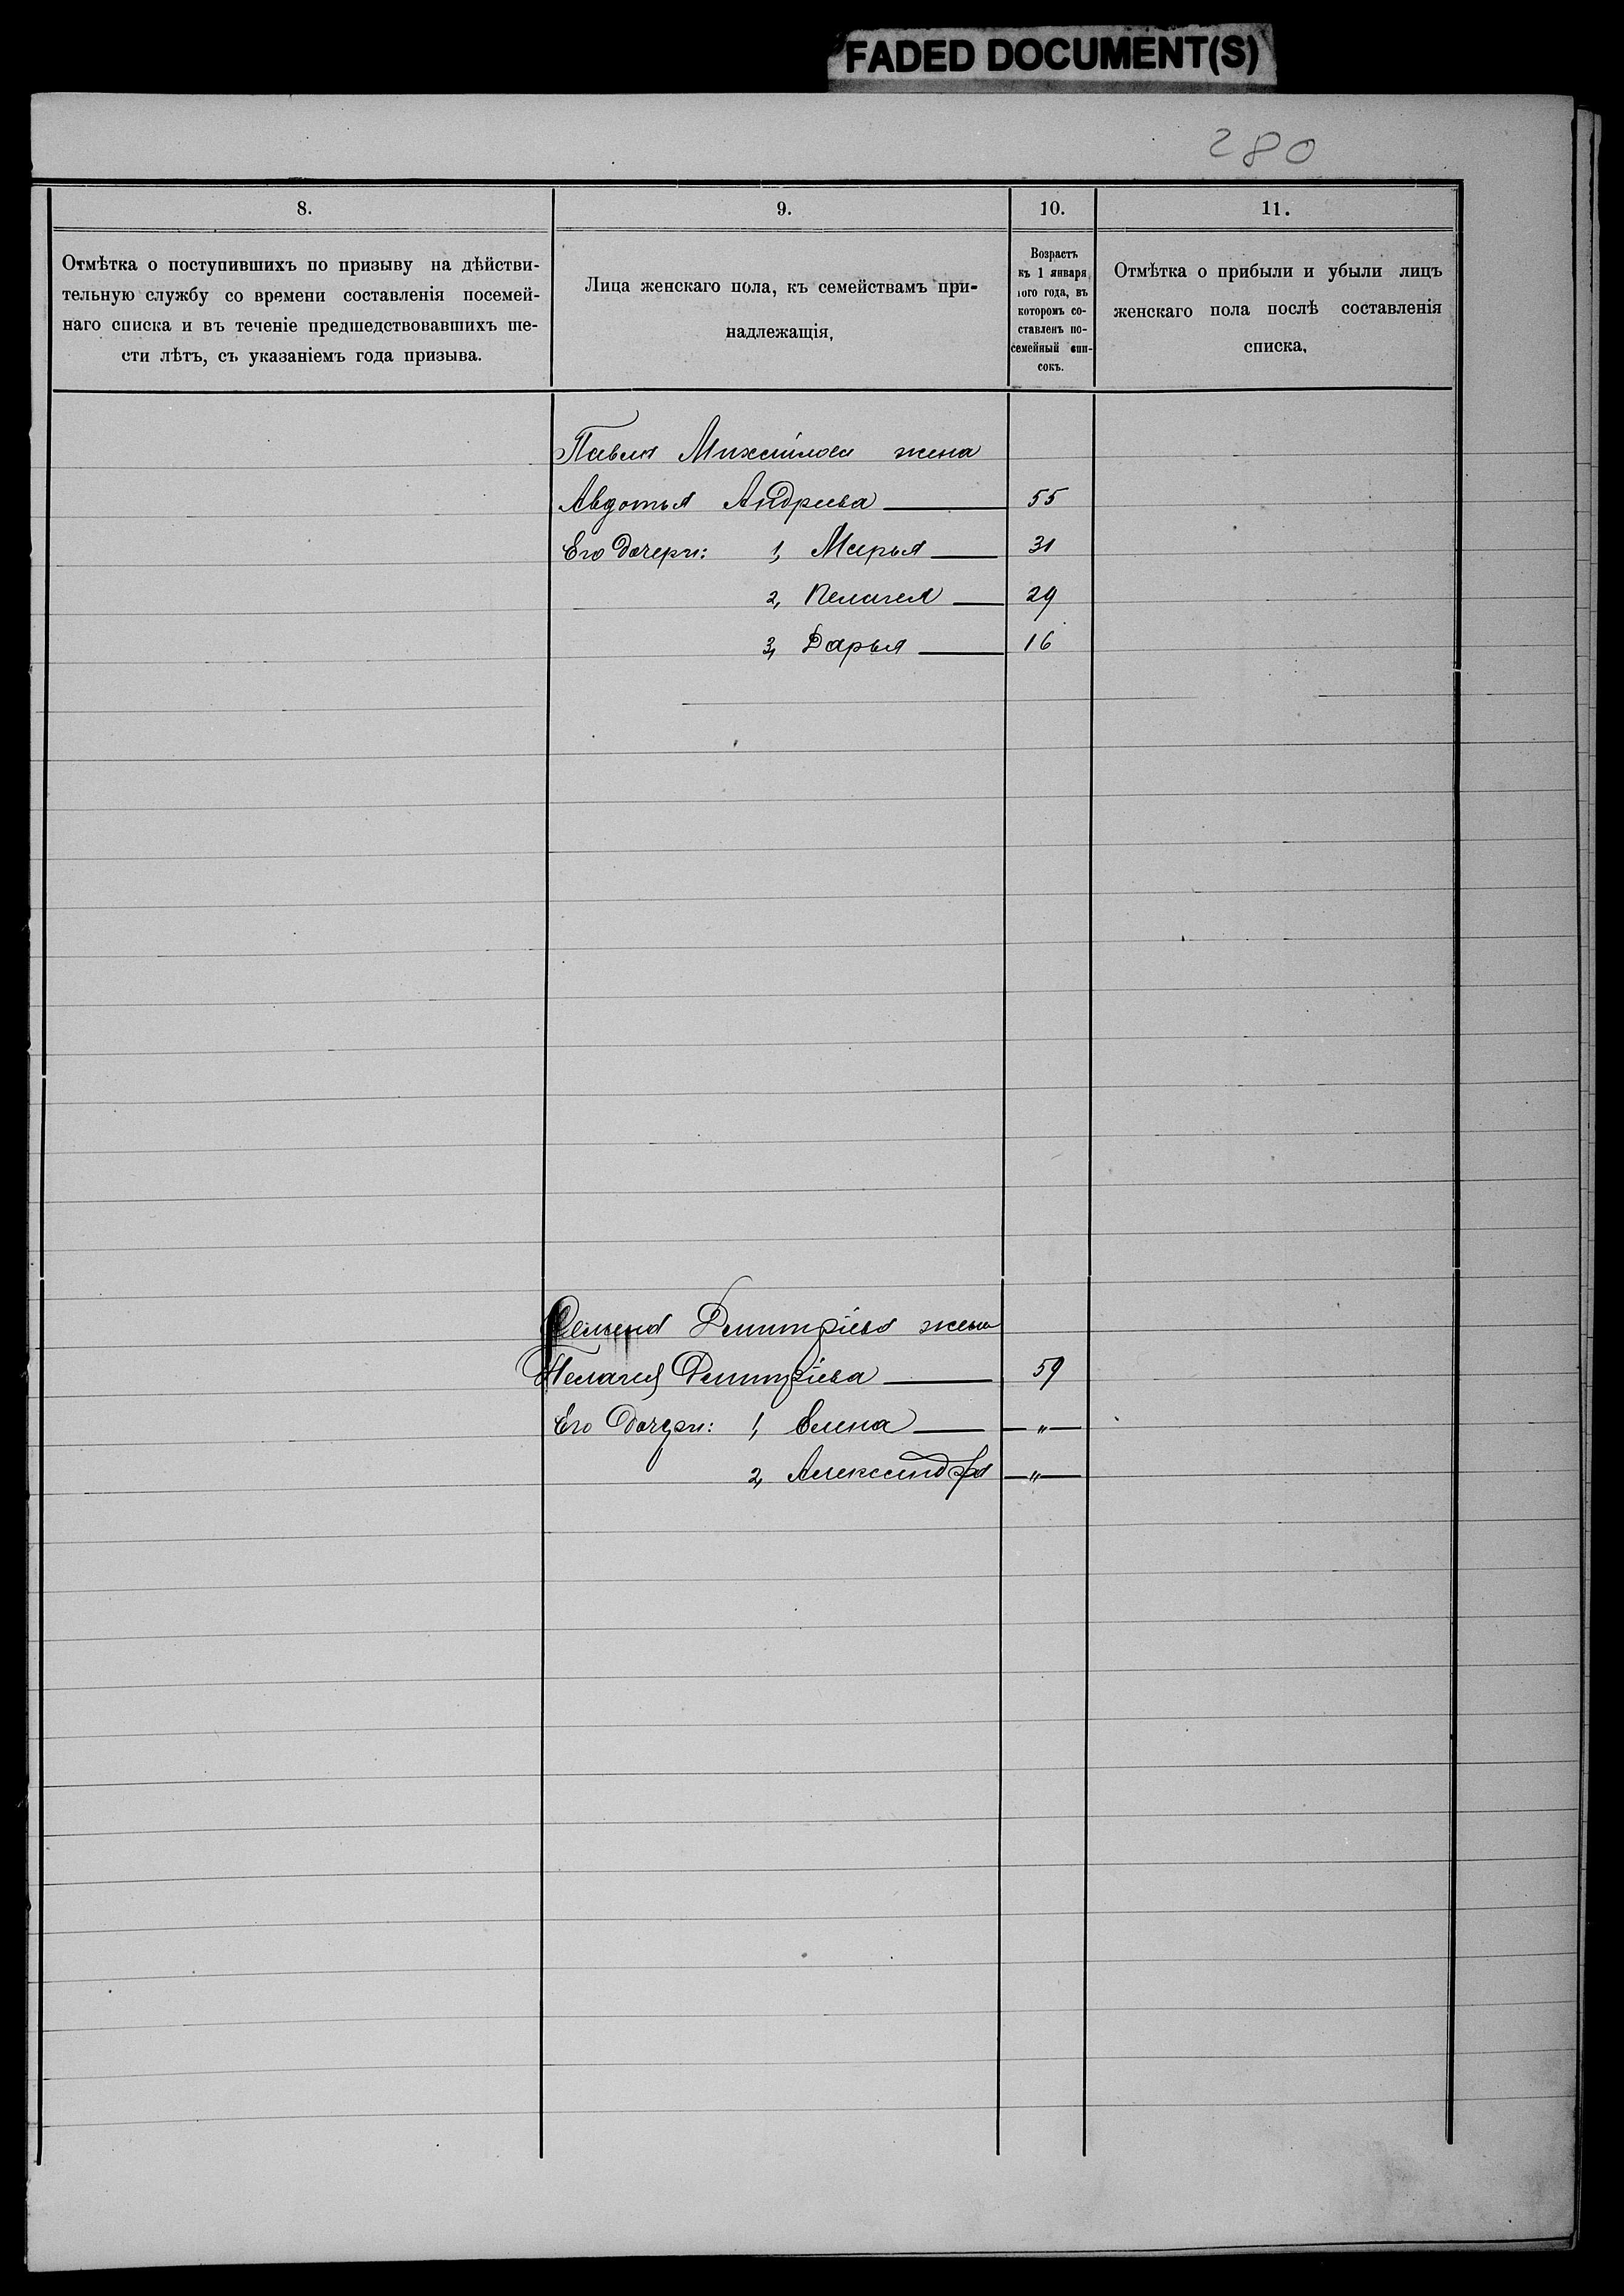 FADED DOCUMENT(S)
280
8.
9.
10.
11.
Отмѣтка о поступившихъ по призыву на дѣйстви-
тельную службу со времени составленія посемей-
наго списка и въ теченіе предшедствовавшихъ ше-
сти лѣтъ, съ указаніемъ года призыва.
Лица женскаго пола, къ семействамъ при-
надлежащія,
Возрастъ
къ 1 января
того года, въ
которомъ со-
ставленъ по-
семейный спи-
сокъ.
Отмѣтка о прибыли и убыли лицъ
женскаго пола послѣ составленія
списка,
Павла Михайлова жена
Авдотья Андреева 55
Его дочери: 1, Марья 31
2, Пелагея 29
3, Дарья 16
Семена Димитріева жена
Пелагея Димитріева 59
Его дочери: 1, Елена — „ —
2, Александра — „ —